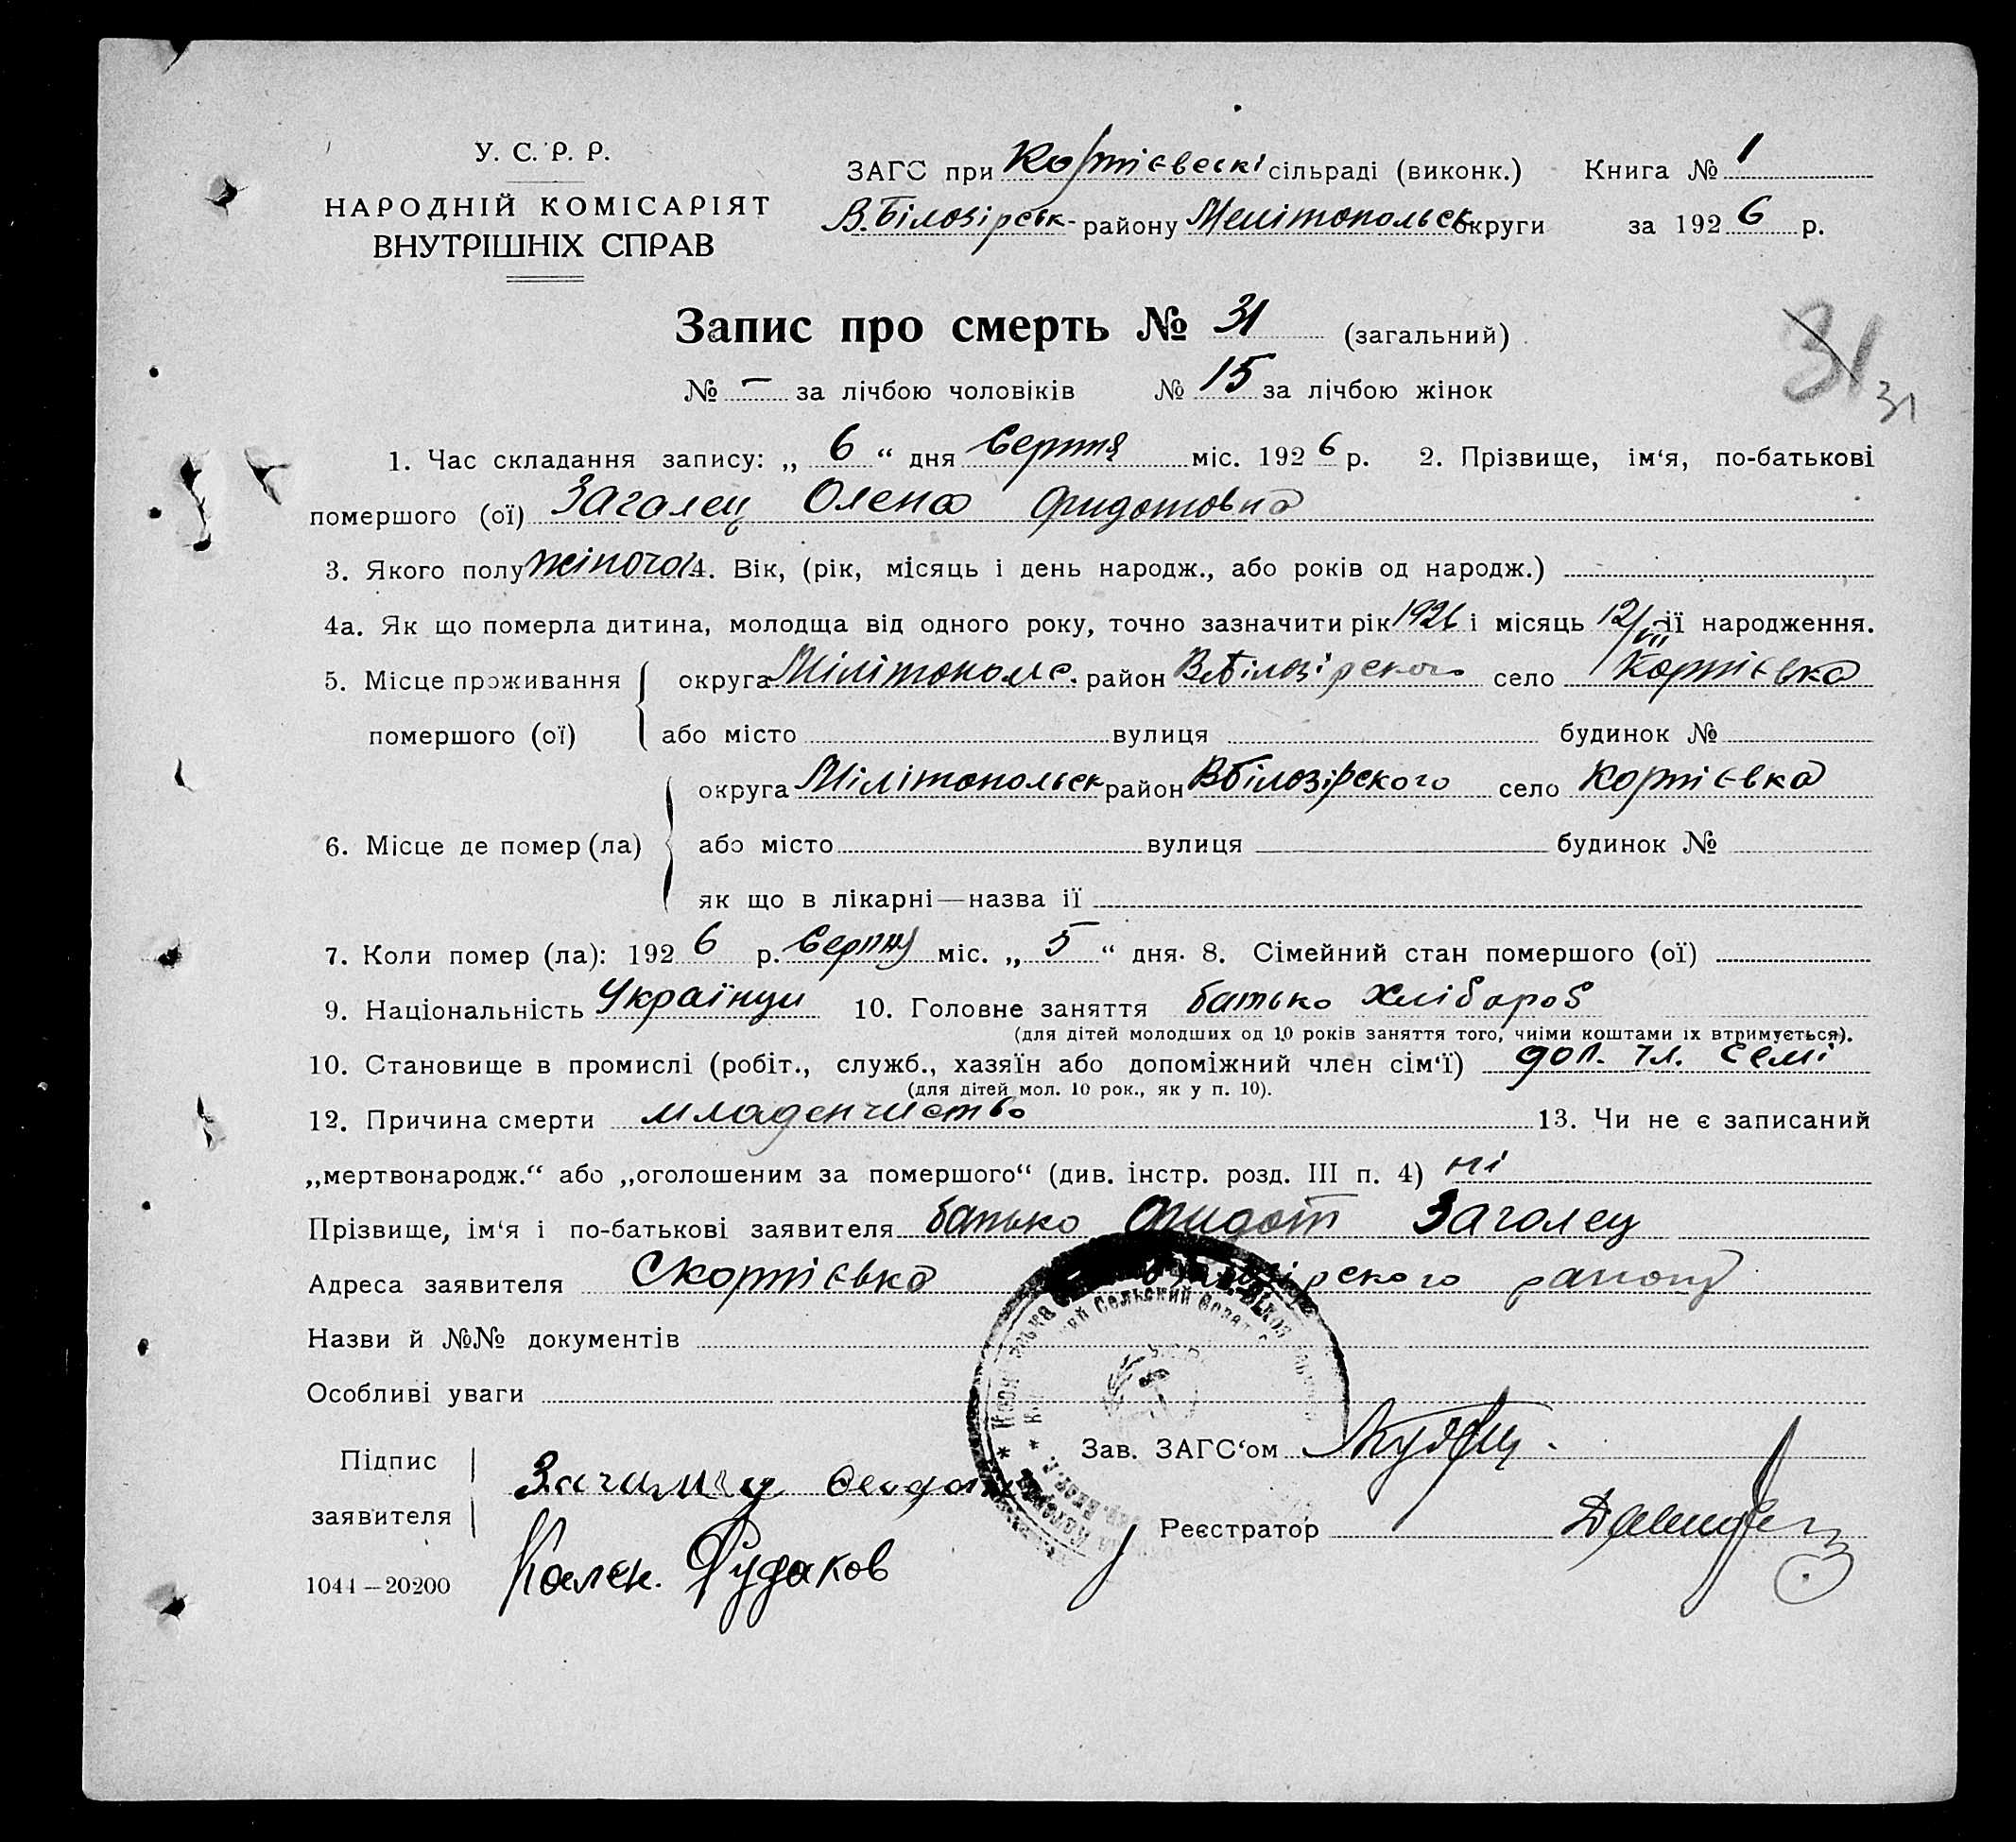 У. С. Р. Р.
НАРОДНІЙ КОМІСАРІЯТ
ВНУТРІШНІХ СПРАВ
ЗАГС при Кортієвскі сільраді (виконк.) Книга № 1
В.Білозірськ- району Мелітопольськ округи за 1926 р.
Запис про смерть № 31 (загальний)
31
31
№ – за лічбою чоловіків № 15 за лічбою жінок
1. Час складання запису: „ 6 “ дня Серпня міс. 1926 р. 2. Прізвище, ім‘я, по-батькові
помершого (ої) Загалец Олена Фидотовна
3. Якого полу жіночої 4. Вік, (рік, місяць і день народж., або років од народж.)
4а. Як що померла дитина, молодща від одного року, точно зазначити рік 1926 і місяць 12/III ії народження.
5. Місце проживання помершого (ої) округа Мілітополс. район ВБілозірского село Кортієвка
або місто вулиця будинок №
6. Місце де помер (ла) округа Мілітопольск район ВБілозірского село Кортієвка
або місто вулиця будинок №
як що в лікарні—назва ії
7. Коли помер (ла): 1926 р. Серпня міс. „ 5 “ дня. 8. Сімейний стан помершого (ої)
9. Національність Українци 10. Головне заняття батько хлібароб
(для дітей молодших од 10 років заняття того, чиіми коштами іх втримується).
10. Становище в промислі (робіт., служб., хазяїн або допоміжний член сім‘ї) доп. чл. семі
(для дітей мол. 10 рок., як у п. 10).
12. Причина смерти младенчиство 13. Чи не є записаний
„мертвонародж.“ або „оголошеним за помершого“ (див. інстр. розд. III п. 4) ні
Прізвище, ім‘я і по-батькові заявителя батько Фидот Заголец
Адреса заявителя Скортієвка району
Назви й №№ документів
Особливі уваги
Підпис заявителя
Зав. ЗАГС‘ом
Реєстратор
Сельский Совет
1044—20200 Рудаков